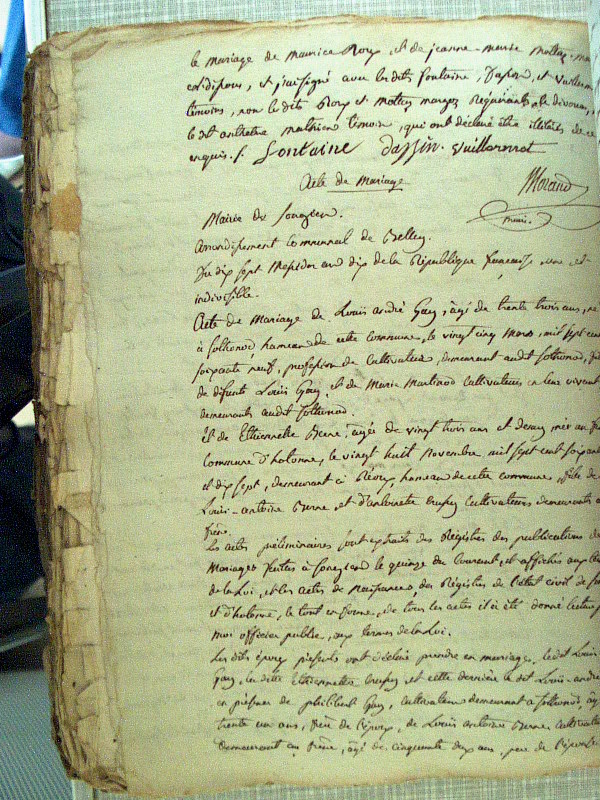 le mariage de maurice Roux, et de jeanne-marie
et j'ai signé avec lesdits fontaine, Dassin, et
témoins, non le dit Roux et
témoin, qui ont déclaré être illitérés de ce
enquis. /. fontaine dassin. Vuillermot
Acte de Mariage
Morand
maire.
Mairie de songieu.
Arrondissement Communal de Belley.
Du dix sept Messidor an dix de la République française une et
indivisible.
Acte de Mariage de Louis andré Gay, âgé de trente trois ans, né
à sothonod, hameau de cette commune, le vingt cinq Mars, mil sept cent
soixante neuf, profession de cultivateur, demeurant audit sothonod, fils
de défunts Louis Gay, et de Marie Martinod cultivateurs en leur vivant
demeurants audit sothonod.
Et de Ethiennette Berne, âgée de vingt trois ans et demy née au
Commune d'hotonne, le vingt huit Novembre mil sept cent soixante
et dix sept, demeurant à hameau de cette commune, fille de
Louis-antoine Berne, et d'antoinette cultivateurs demeurants
Les actes préliminaires sont extraits des Registres des publications de
Mariages faites à le quinze du Courant, et affichés aux
de la Loi, et les actes de Naissances, des Registres de l'état civil de
et d'hotonne, le tout en forme, de tous les actes il a été donné lecture
moi officier public, aux termes de la Loi.
Les dits époux présents ont déclaré prendre en mariage, ledit Louis
Gay, la dite Ethiennette et cette dernière le dit Louis-andré
en présence de philibert Gay, cultivateur demeurant à sothonod, âgé
trente un ans, frère de l'époux, de Louis antoine Berne, cultivateur
demeurant au âgé de cinquante deux ans, père de l'épouse